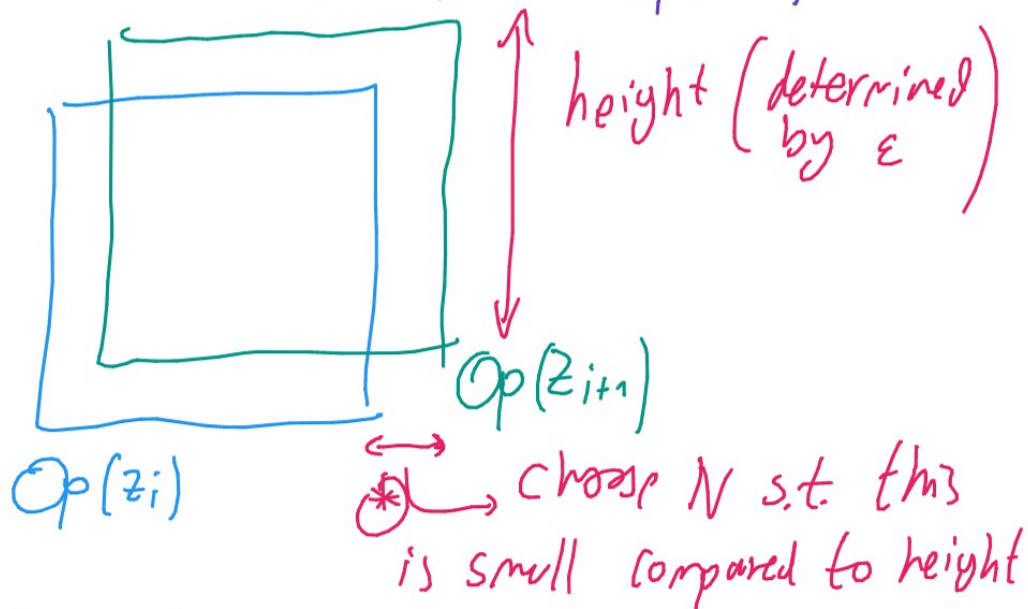 height (determined
by ε)
Op(z_{i+1})
Op(z_i)
* choose N s.t. this
is small compared to height